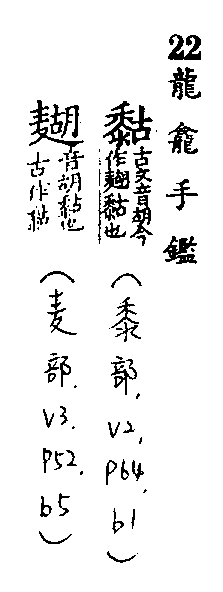 22龍龕手鑑
黏古文音胡今作麹黏也(黍部,V2,P64,b1)
麴音胡黏也古作黏(麦部,V3,P52,b5)